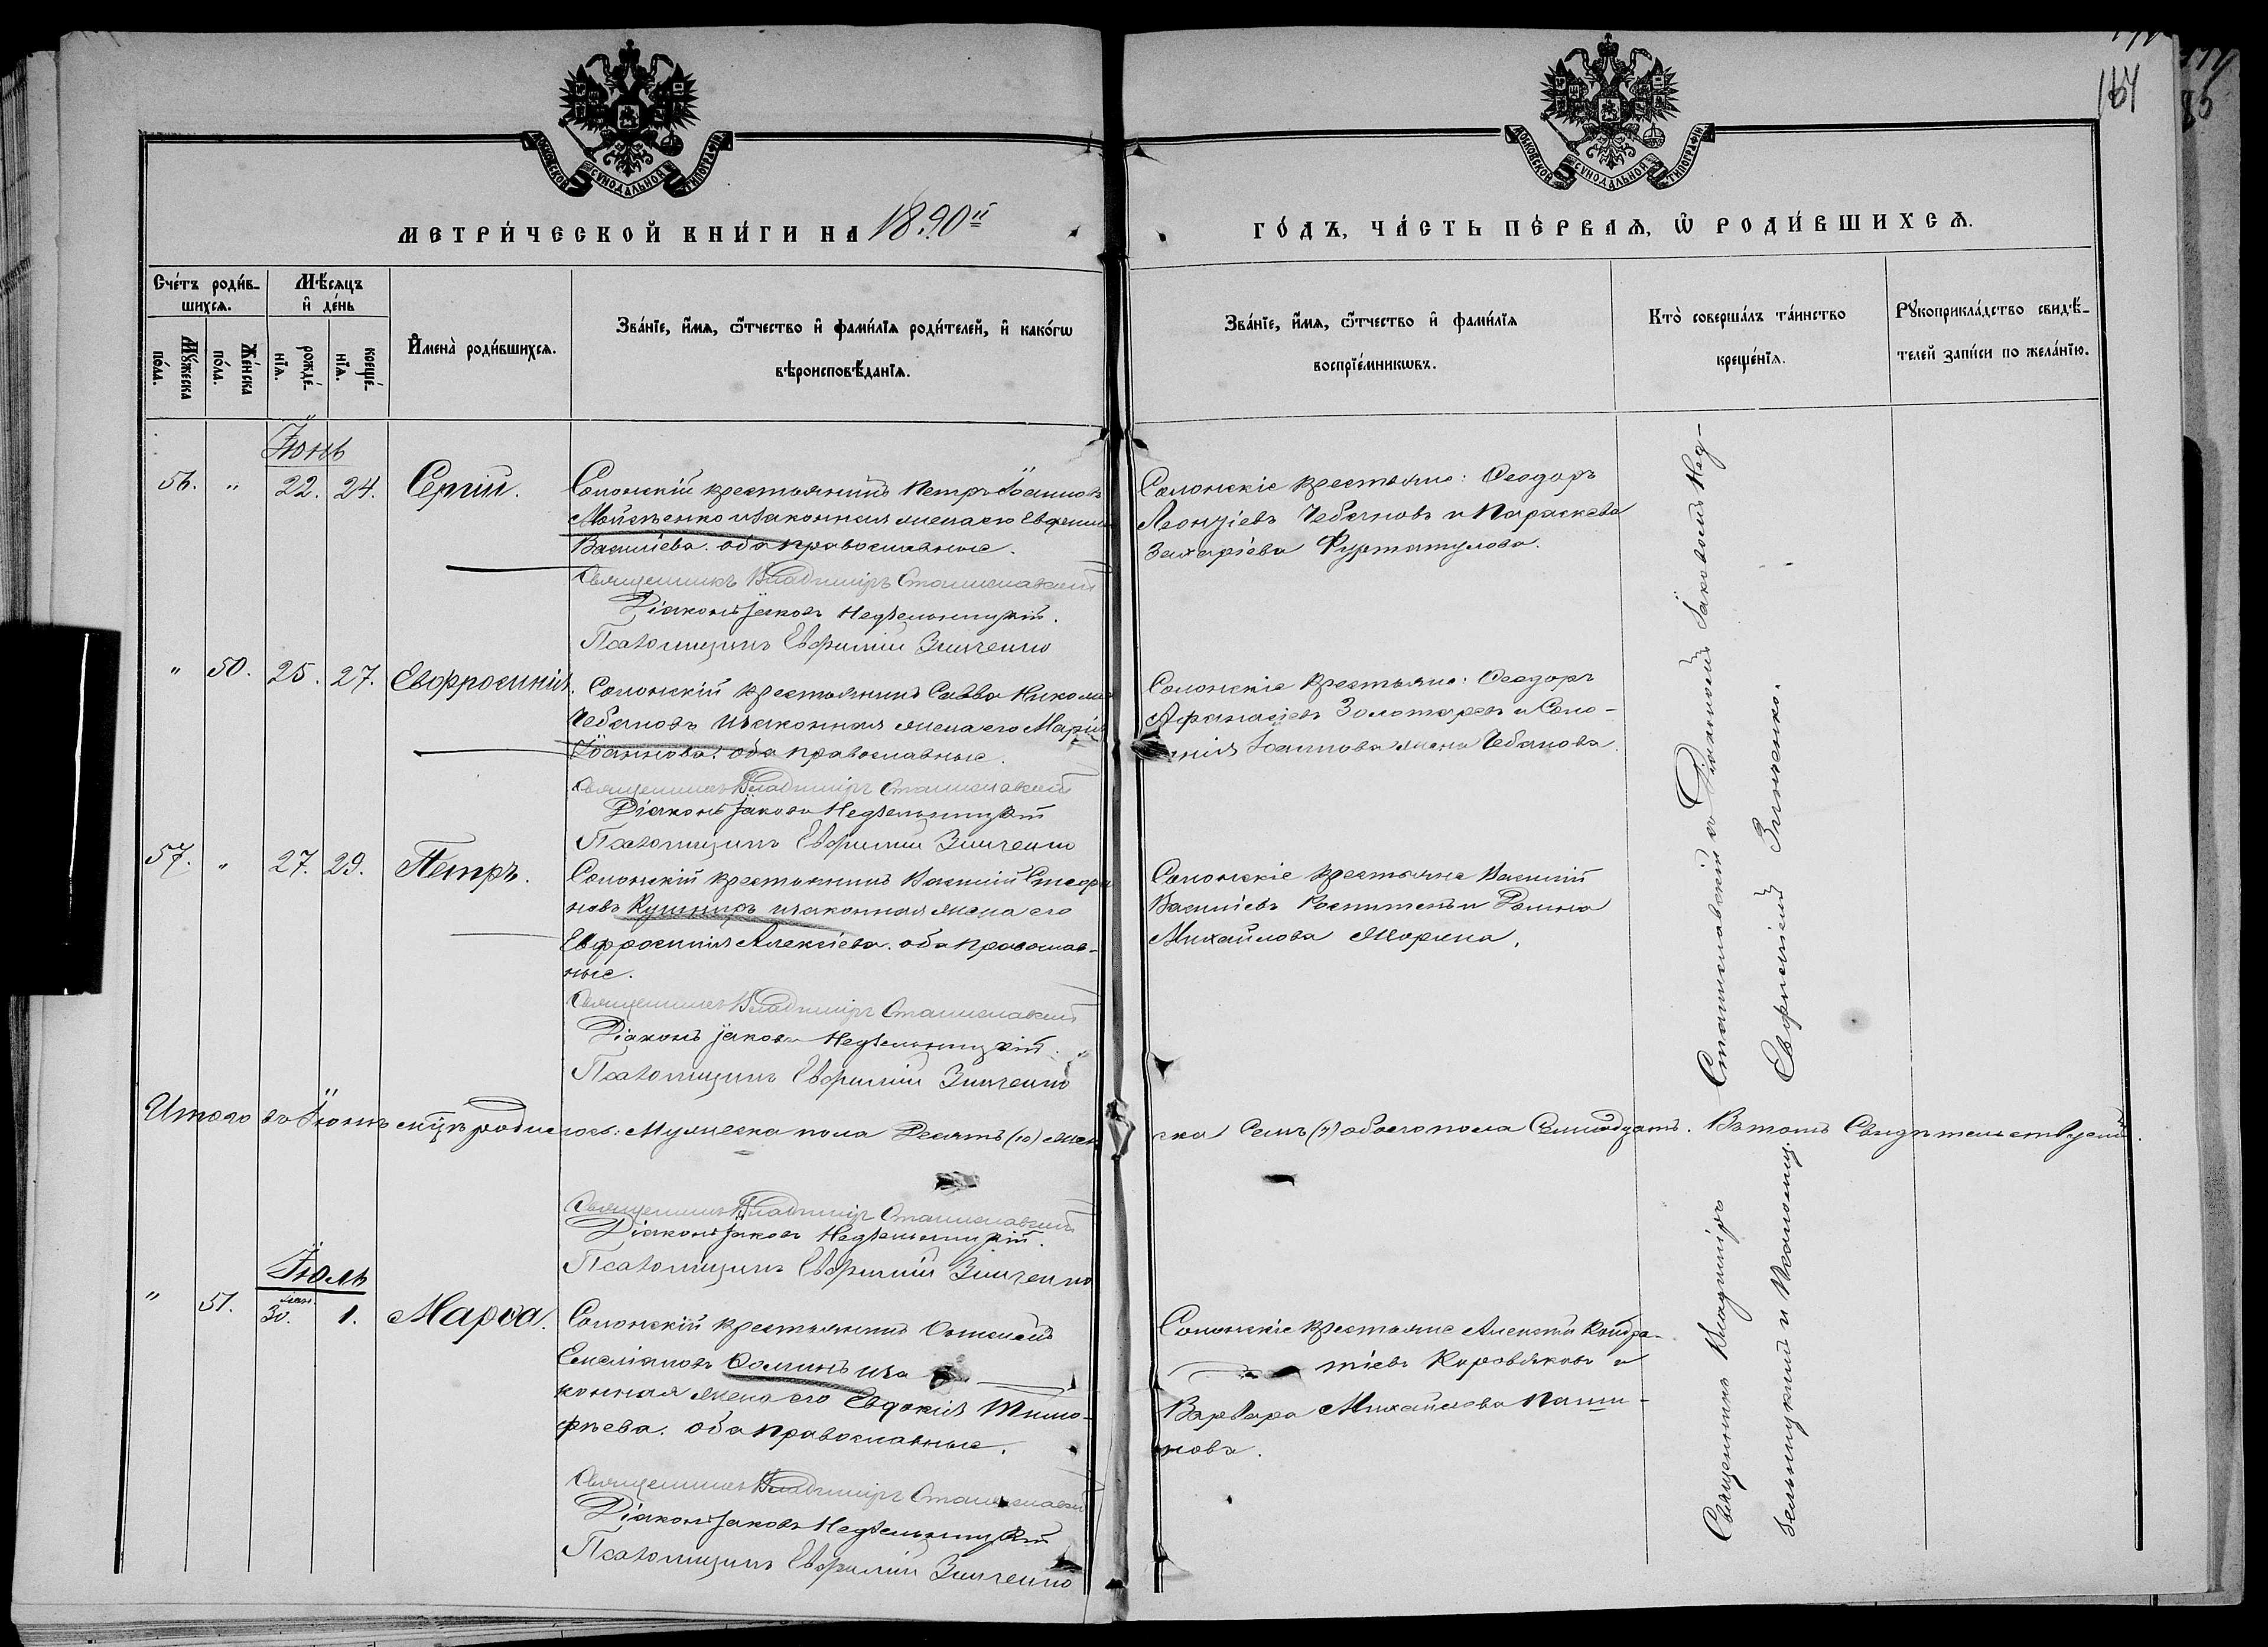 164
МОСКОВСКОЙ СѴНОДАЛЬНОЙ ТИПОГРАФІИ
МОСКОВСКОЙ СѴНОДАЛЬНОЙ ТИПОГРАФІИ
МЕТРИ́ЧЕСКОЙ КНИ́ГИ НА 1890й
ГО́ДЪ, ЧА́СТЬ ПЕ́РВАѦ, Ѽ РОДИ́ВШИХСѦ.
Сче́тъ роди́в-
шихсѧ.
Мѣ́сяцъ
и҆ де́нь
Мꙋ́жеска
по́ла.
Же́нска
по́ла.
рожде́-
нїѧ.
креще́-
нїѧ.
И҆мена̀ роди́вшихсѧ.
Зва́нїе, и҆́мѧ, ѻ҆́тчество и҆ фами́лїѧ роди́телей, и҆ како́гѡ
вѣроисповѣ́данїѧ.
Зва́нїе, и҆́мѧ, ѻ҆́тчество и҆ фами́лїѧ
воспрїе́мникѡвъ.
Кто̀ соверша́лъ та́инство
креще́нїѧ.
Рꙋкоприкла́дство свидѣ́-
телей за́писи по жела́нїю.
Іюнь
56. " 22. 24. Сергій.
Солонскій крестьянинъ Петръ Іоанновъ
Мойсѣенко и законная жена его Евфимія
Василіева. оба православные.
Священникъ Владиміръ Станиславскій
Діаконъ Іаковъ Недѣльницкій.
Псаломщикъ Евфимій Зинченко
Солонскіе крестьяне: Ѳеодоръ
Леонтіевъ Чебановъ и Параскева
Захаріева Фуртатулова.
" 50. 25. 27. Евфросинія.
Солонскій крестьянинъ Савва Николаевъ
Чебановъ и законная жена его Марія
Іоаннова. оба православные.
Священникъ Владиміръ Станиславскій
Діаконъ Іаковъ Недѣльницкій
Псаломщикъ Евфимій Зинченко
Солонскіе крестьяне: Ѳеодоръ
Афанасіевъ Золотаревъ и
Іоаннова жена Чебанова.
57. " 27. 29. Петръ.
Солонскій крестьянинъ Василій Стефа
новъ Кушниръ и законная жена его
Евфросинія Алексіева. оба православ-
ные.
Священникъ Владиміръ Станиславскій
Діаконъ Іаковъ Недѣльницкій.
Псаломщикъ Евфимій Зинченко
Солонскіе крестьяне Василій
Василіевъ и
Михайлова
Итого въ Іюнѣ мцѣ родилось: Мужеска пола Десять (10) жен
ска Семь (7) обоего пола Семнадцать. Въ томъ Свидѣтельствуемъ.
Священникъ Владиміръ Станиславскій
Діаконъ Іаковъ Недѣльницкій.
Псаломщикъ Евфимій Зинченко
Іюль
" 51. Іюн. 30. 1. Марѳа.
Солонскій крестьянинъ
Емеліановъ Ѳоминъ и за
конная жена его Евдокія Тимо-
фѣева. оба православные.
Священникъ Владиміръ Станиславскій
Діаконъ Іаковъ Недѣльницкій
Псаломщикъ Евфимій Зинченко
Солонскіе крестьяне Алексій Кондра-
тіевъ Коровяковъ и
Варвара Михайлова Паши-
нова.
Священникъ Владиміръ Станиславскій съ Діакономъ Іаковомъ Нед-
ѣльницкій и Псаломщ. Евфимій Зинченко.